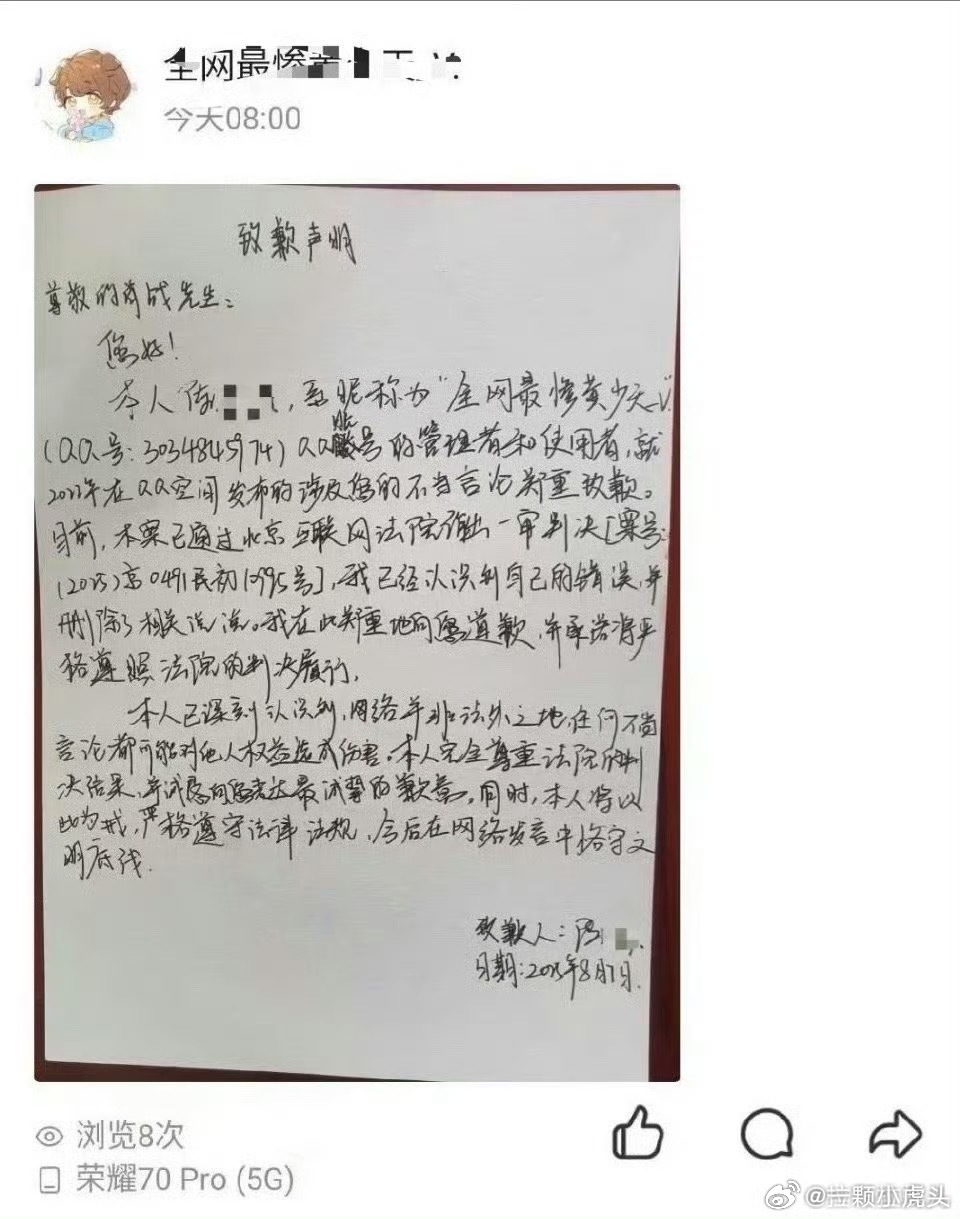 全网最惨
今天08:00
致歉声明
尊敬的肖战先生：
您好！
本人陈，系昵称为“全网最惨黄少天
(QQ号：3034845974) QQ账号的管理者和使用者，就
年在QQ空间发布的涉及您的不当言论郑重致歉。
目前，本案已通过北京互联网法院作出一审判决[案号：
京0491民初号]，我已经认识到自己的错误，并
删除了相关说说。我在此郑重地向您道歉，并承诺将严
格遵照法院的判决履行。
本人已深刻认识到，网络并非法外之地，任何不当
言论都可能对他人权益造成伤害。本人完全尊重法院的判
决结果，并诚恳向您表达最诚挚的歉意。同时，本人将以
此为戒，严格遵守法律法规，今后在网络发言中恪守文
明底线。
致歉人：
日期：2025年8月7日
浏览8次
荣耀70 Pro (5G)
@壮颗小虎头